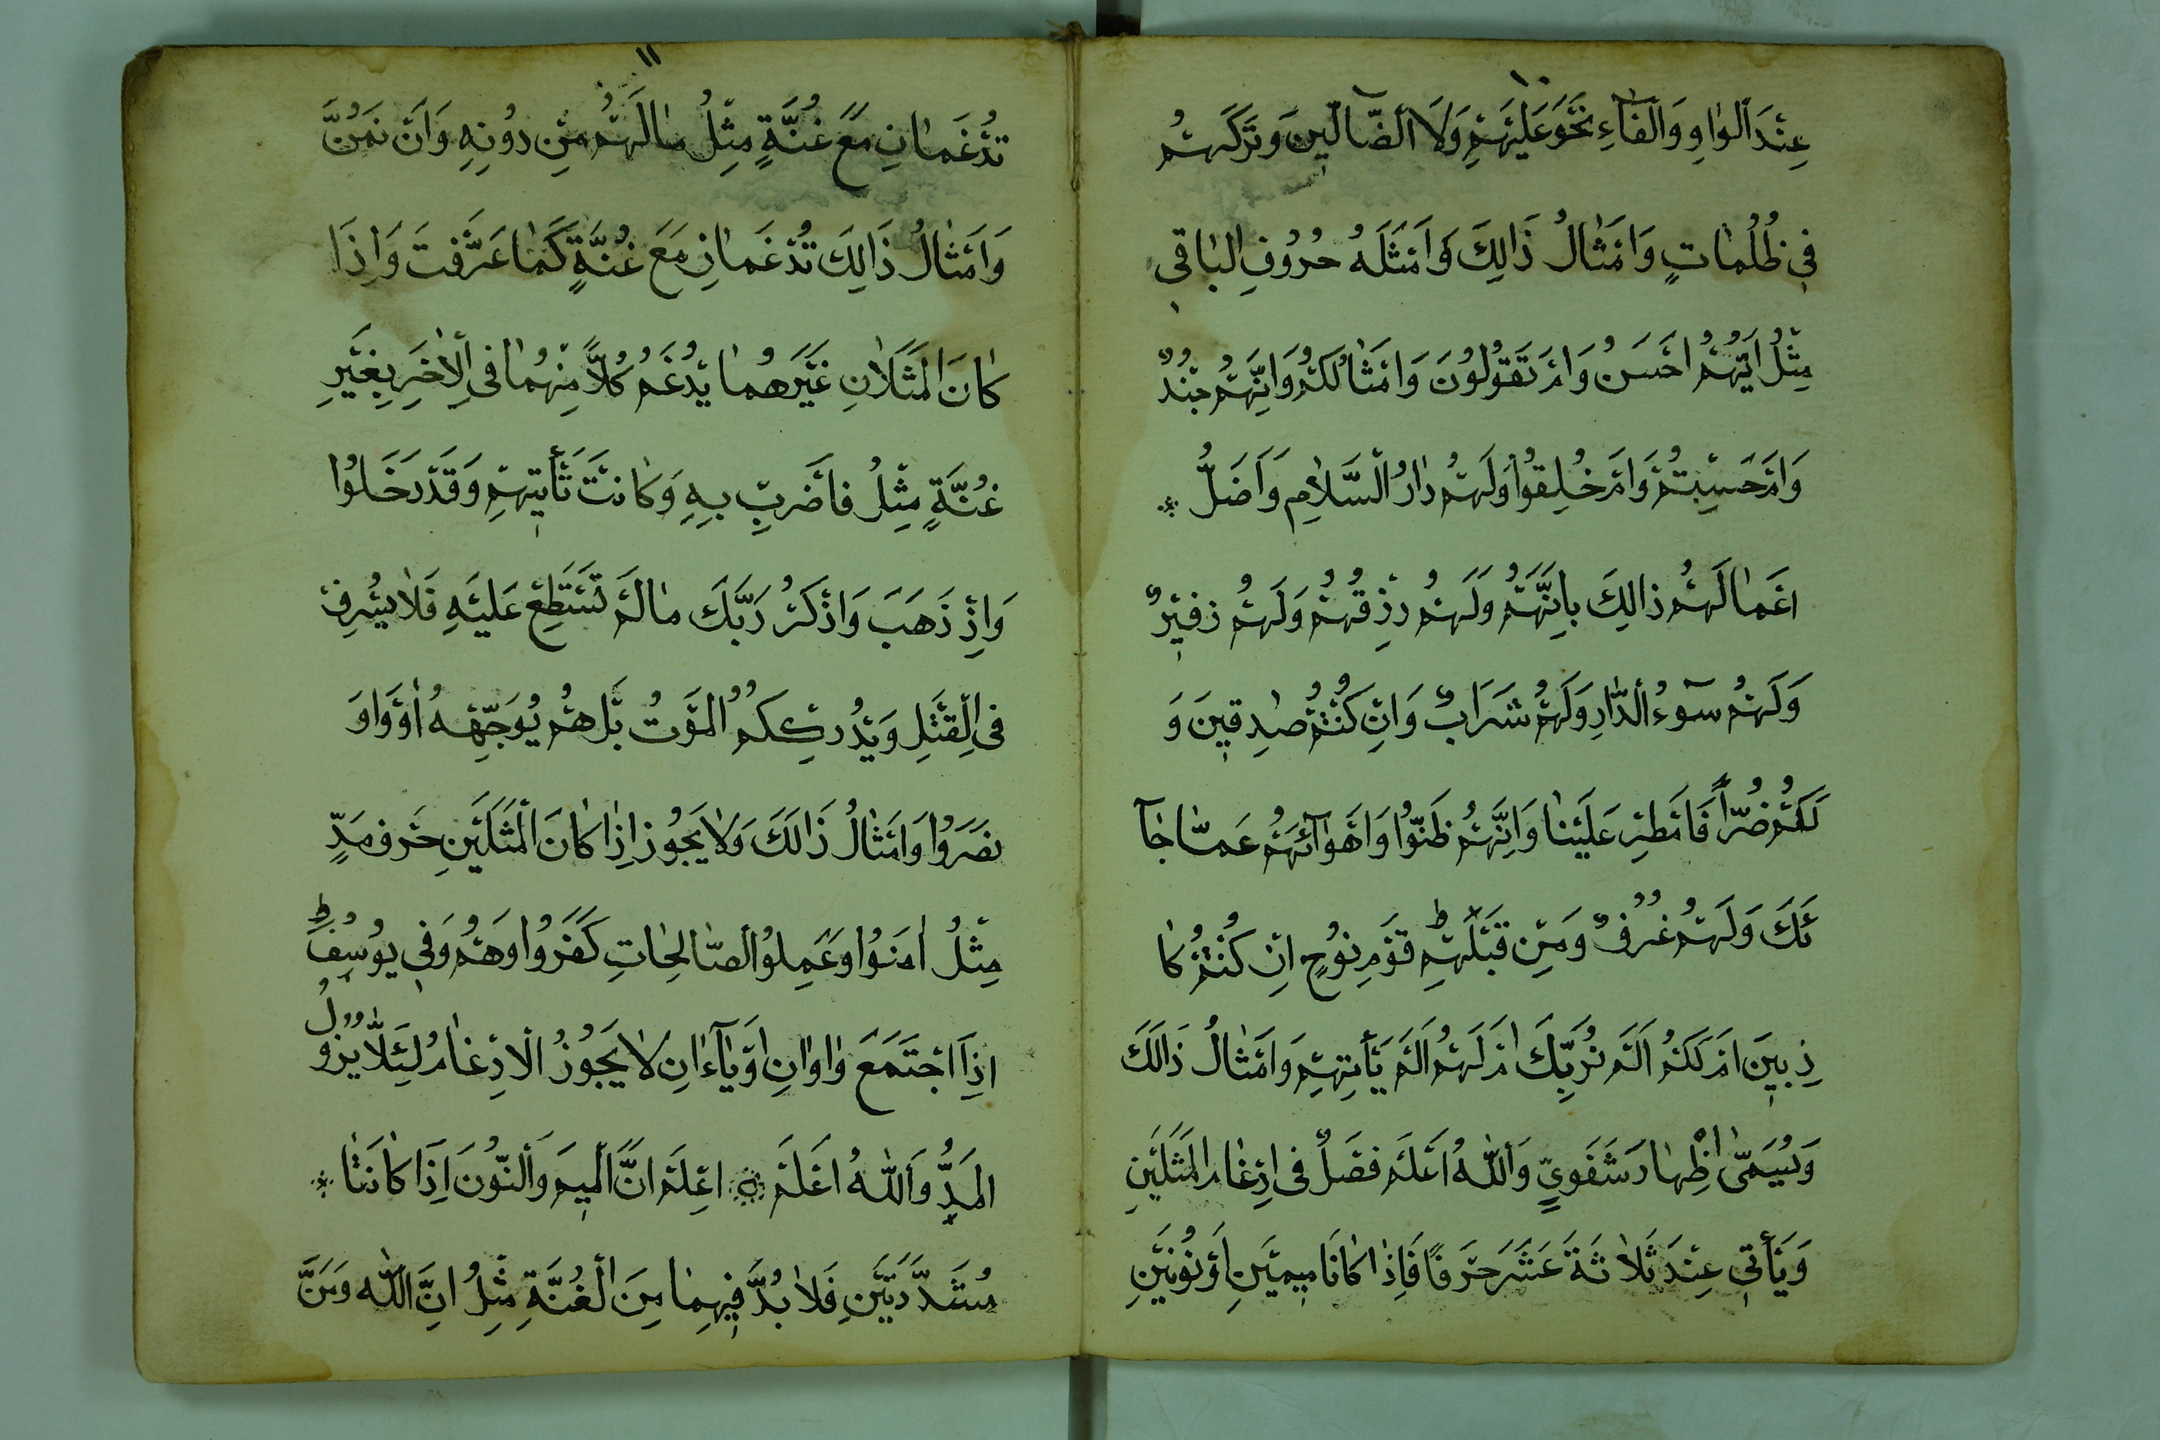 ١٠
عِنْدَ الْوَاوِ وَالْفَاءِ نَحْوَ عَلَيْهِمْ وَلَا الضَّالِّينَ وَتَرَكَهُمْ
فِي ظُلُمَاتٍ وَاَمْثَالُ ذَالِكَ وَاَمْثَلَهُ حُرُوفِ الْبَاقِي
مِثْلُ اَيُّهُمْ اَحْسَنُ وَاَمْ تَقُولُونَ وَاَمْثَالُكُمْ وَاِنَّهُمْ جُنْدٌ
وَاَمْ حَسِبْتُمْ وَاَمْ خُلِقُوا وَلَهُمْ دَارُ السَّلَامِ وَاَضَلُّ
اَعْمَالَهُمْ ذَالِكَ بِاَنَّهُمْ وَلَهُمْ رِزْقُهُمْ وَلَهُمْ زَفِيرٌ
وَلَهُمْ سُوٓءُ الدَّارِ وَلَهُمْ شَرَابٌ وَاِنْ كُنْتُمْ صَادِقِينَ وَ
لَكُمْ ضُرًّا فَاَمْطِرْ عَلَيْنَا وَاِنَّهُمْ ظَنُّوا وَاَهْوَآئَهُمْ عَمَّا جَآ
ئَكَ وَلَهُمْ غُرُفٌ وَمِنْ قَبْلِهِمْ قَوْمِ نُوحٍ اِنْ كُنْتُمْ كَا
ذِبِينَ اَمْ لَكُمْ اَلَمْ نُرَبِّكَ اَمْ لَهُمْ اَلَمْ يَأْتِهِمْ وَاَمْثَالُ ذَالِكَ
وَيُسَمَّى اِظْهَارَ شَفَوِيٍّ وَاللّٰهُ اَعْلَمُ فَصْلٌ فِي اِدْغَامِ الْمِثْلَيْنِ
وَيَأْتِي عِنْدَ ثَلَاثَةَ عَشَرَ حَرْفًا فَاِذَا كَانَا مِيمَيْنِ اَوْ نُونَيْنِ
١١
تُدْغَمَانِ مَعَ غُنَّةٍ مِثْلُ مَالَهُمْ مِنْ دُونِهِ وَاَنْ نَمُنَّ
وَاَمْثَالُ ذَالِكَ تُدْغَمَانِ مَعَ غُنَّةٍ كَمَا عَرَفْتَ وَاِذَا
كَانَ الْمَثَلَانِ غَيْرَهُمَا يُدْغَمُ كُلًّا مِنْهُمَا فِي الْاٰخَرِ بِغَيْرِ
غُنَّةٍ مِثْلُ فَاضْرِبْ بِهِ وَكَانَتْ تَأْتِيهِمْ وَقَدْ دَخَلُوا
وَاِذْ ذَهَبَ وَاذْكُرْ رَبَّكَ مَالَمْ تَسْتَطِعْ عَلَيْهِ فَلَا يُسْرِفْ
فِي الْقَتْلِ وَيُدْرِكْكُمُ الْمَوْتُ بَلْ هُمْ يُوَجِّهْهُ اَوَوْا وَ
نَصَرُوا وَاَمْثَالُ ذَالِكَ وَلَا يَجُوزُ اِذَا كَانَ الْمَثَلَيْنِ حَرْفِ مَدٍّ
مِثْلُ اٰمَنُوا وَعَمِلُوا الصَّالِحَاتِ كَفَرُوا وَهُمْ وَفِي يُوسُفَ ط
اِذَا اجْتَمَعَ وَاوَانِ اَوْ يَآءَانِ لَا يَجُوزُ الْاِدْغَامُ لِئَلَّا يَزُولُ
الْمَدُّ وَاللّٰهُ اَعْلَمُ اِعْلَمْ اَنَّ الْمِيمَ وَالنُّونَ اِذَا كَانَتَا
مُشَدَّدَتَيْنِ فَلَا بُدَّ فِيهِمَا مِنَ الْغُنَّةِ مِثْلُ اِنَّ اللّٰهَ وَمَنَّ